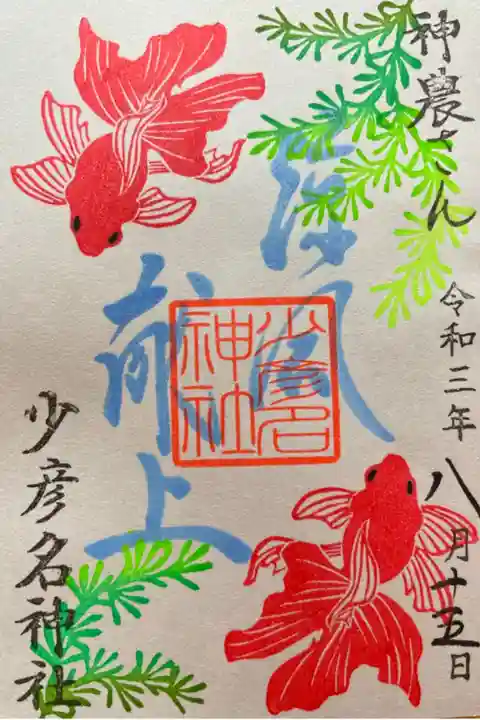 神農さん
令和三年 八月十五日
涼風
献上
少彦名
神社
少彦名神社